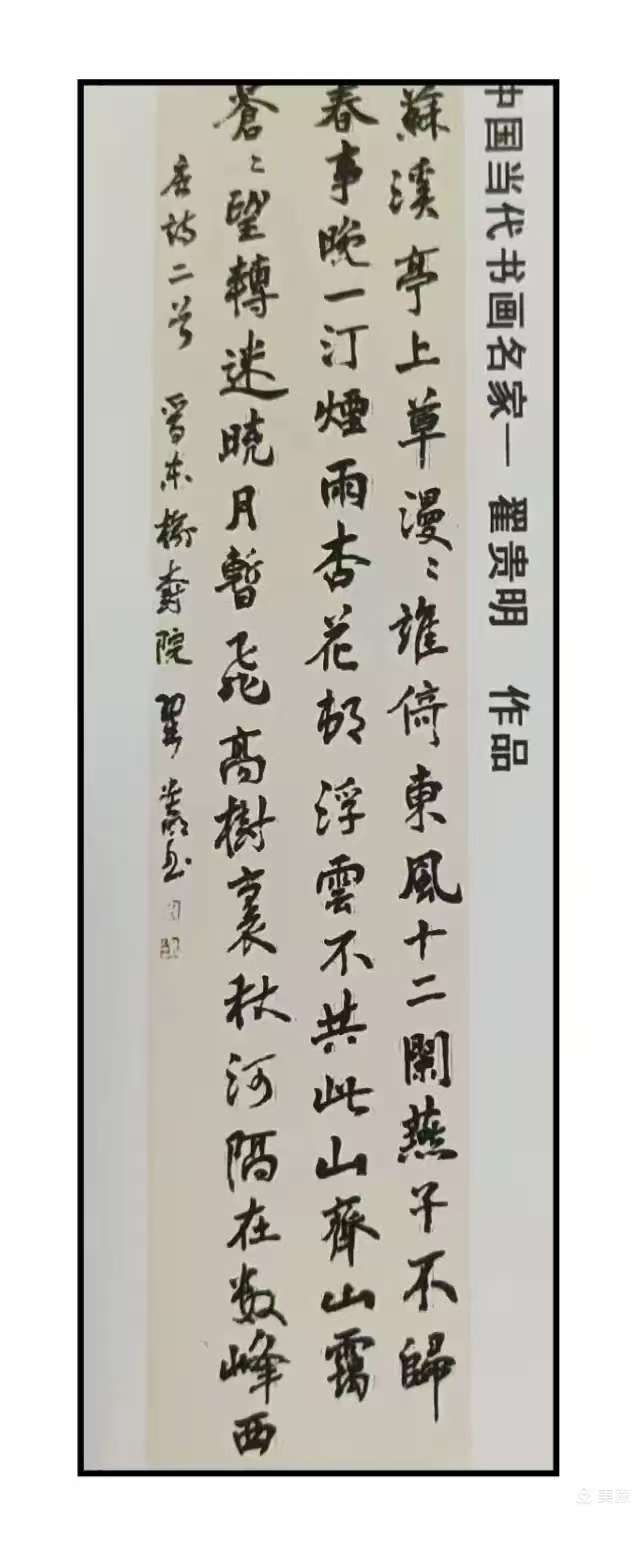 中国当代书画名家一 翟贵明 作品
蘇溪亭上草漫〻誰倚東風十二闌燕子不歸
春事晚一汀煙雨杏花邨浮雲不共此山齊山靄
蒼〻望轉迷曉月暫飛高樹裏秋河隔在數峰西
唐詩二首 晉東榆壽院 翟貴明書
美篇